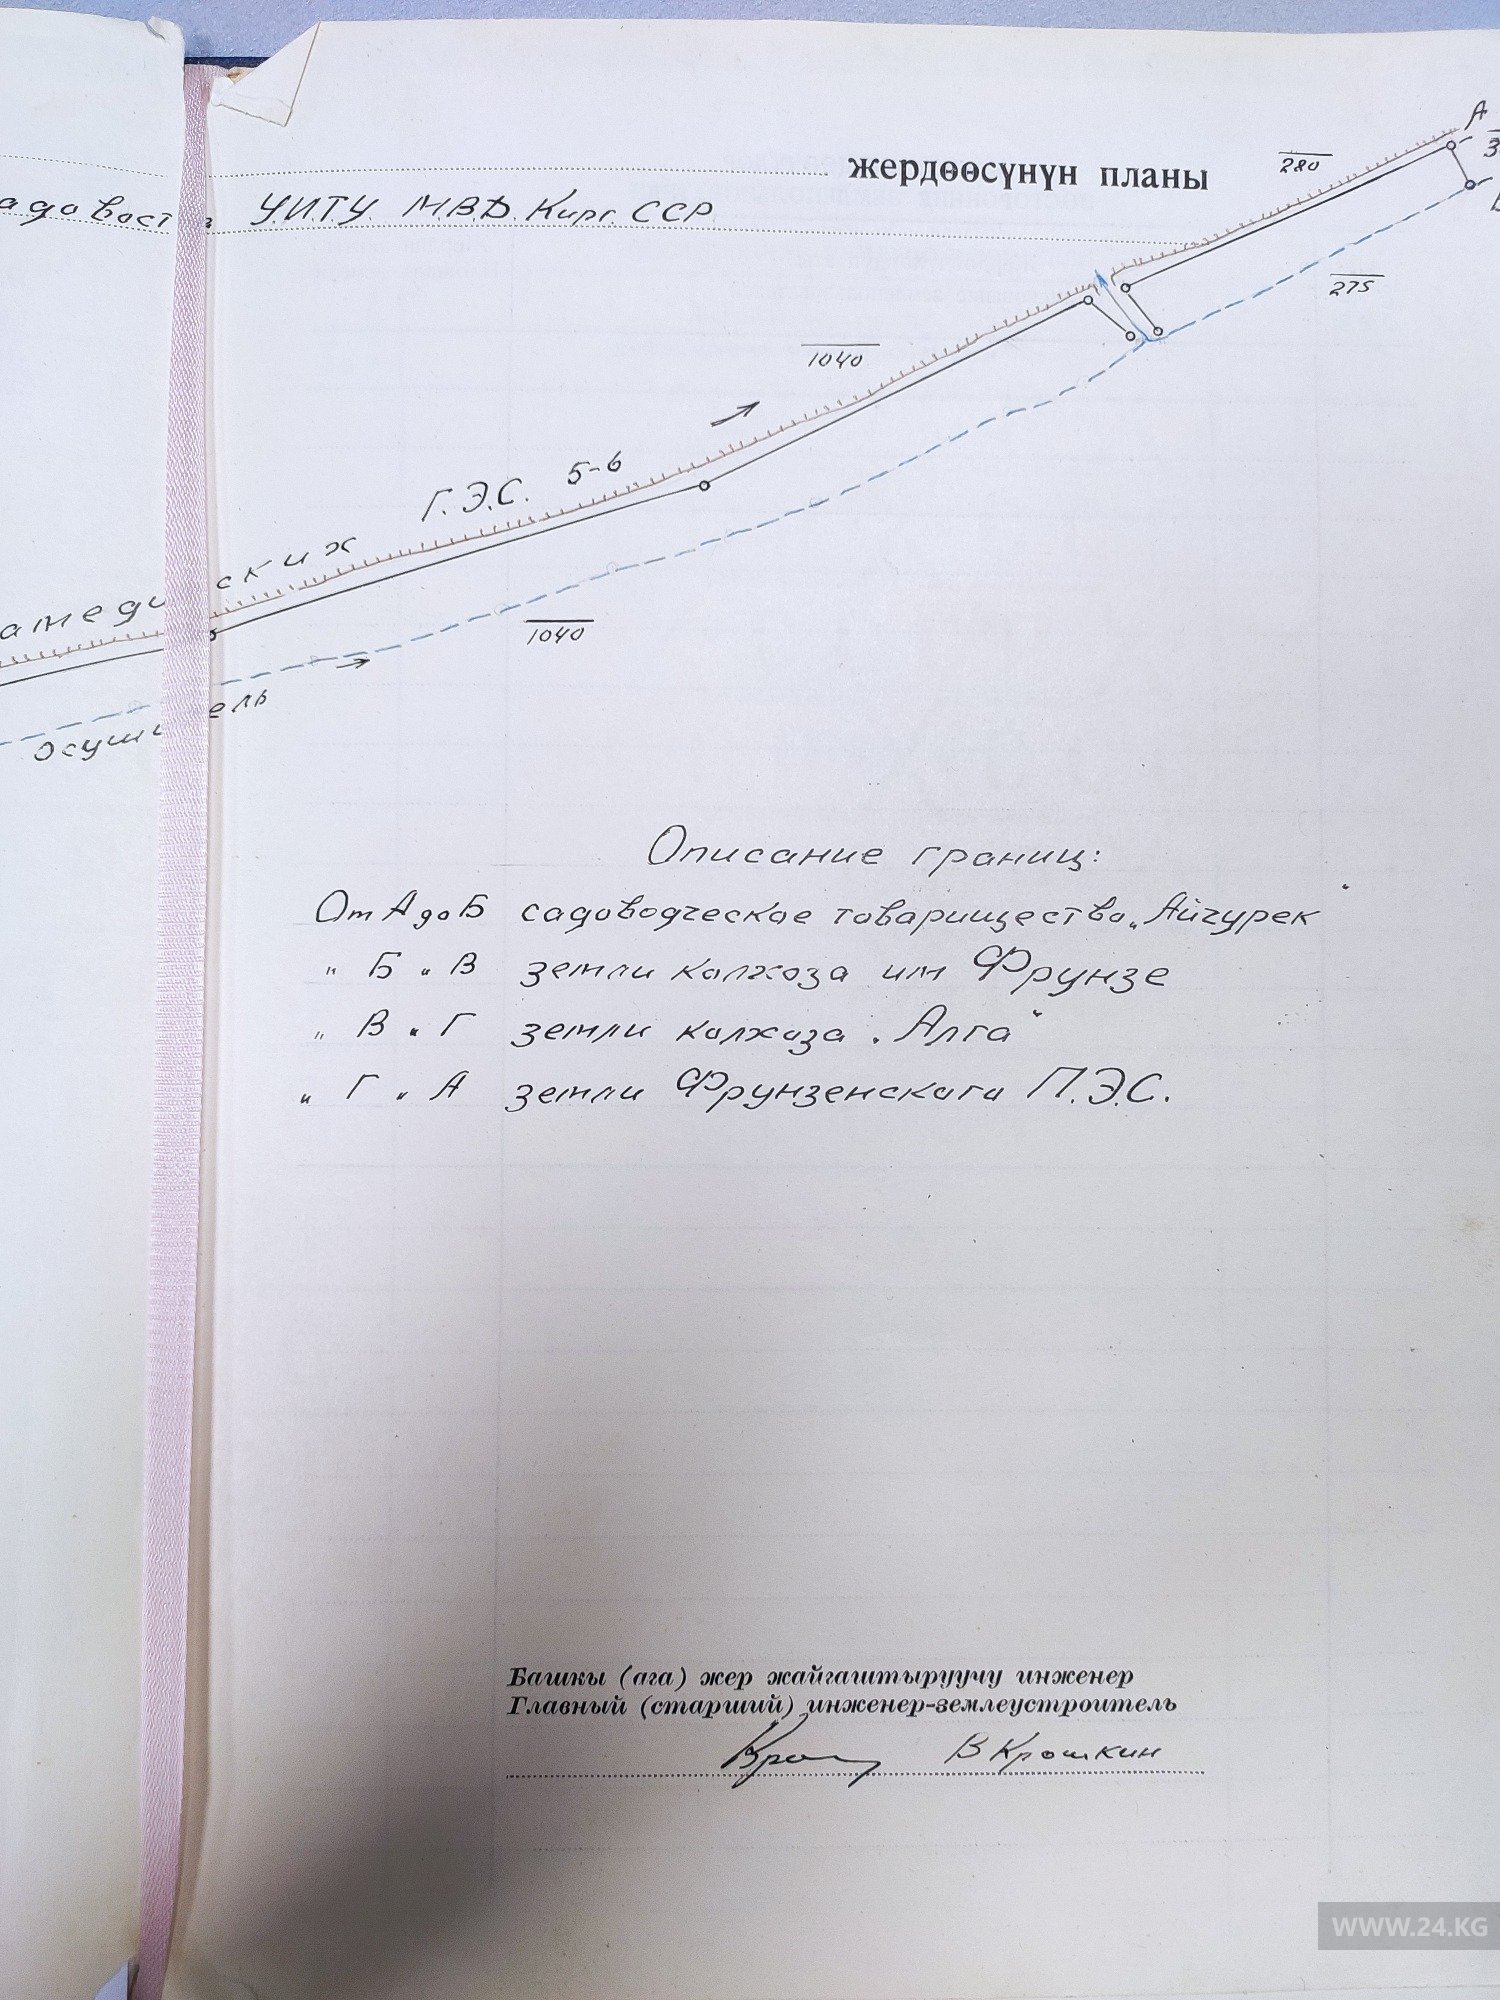 жердөөсүнүн планы
У.И.Т.У. М.В.Д. Кирг. ССР
А
280
275
1040
Г.Э.С. 5-6
ских
1040
Описание границ:
От А до Б садоводческое товарищество „Айчурек"
" Б " В земли колхоза им Фрунзе
" В " Г земли колхоза „Алга"
" Г " А земли Фрунзенского П.Э.С.
Башкы (ага) жер жайгаштыруучу инженер
Главный (старший) инженер-землеустроитель
В Крошкин
WWW.24.KG